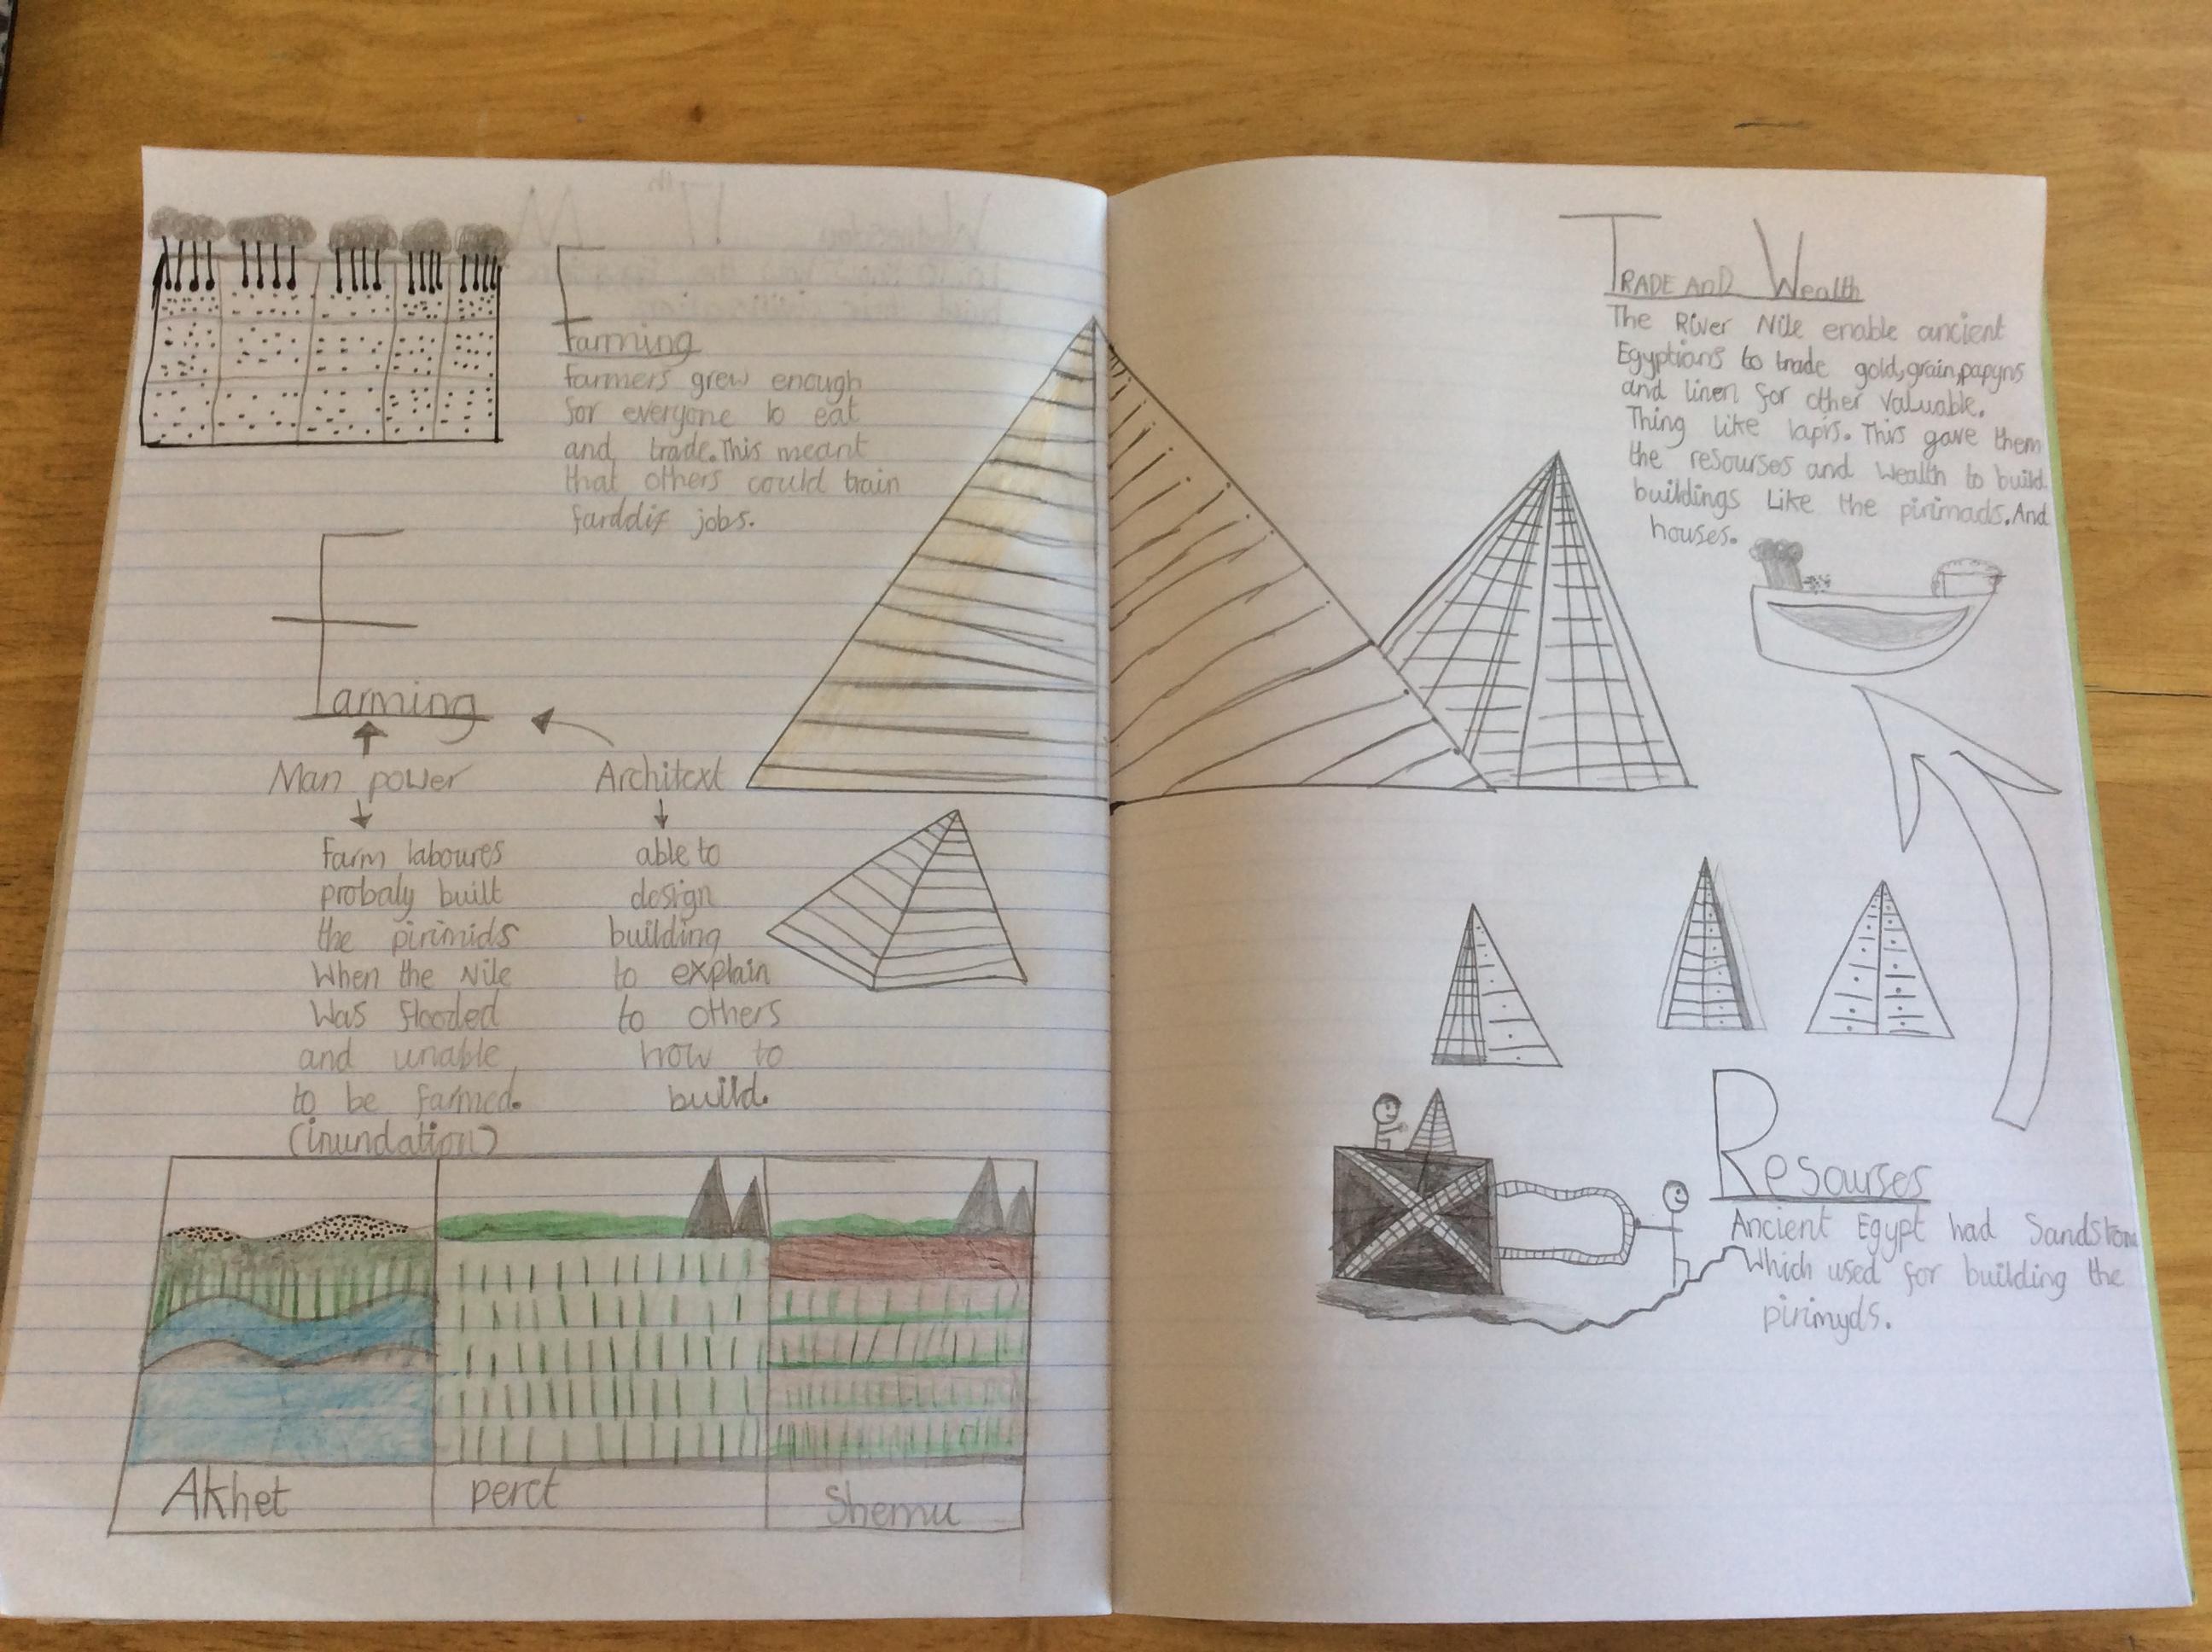 Farming
Farmers grew enough
for everyone to eat
and trade. This meant
that others could train
jobs.
Farming
Man power
Farm laboures
probaly built
the pirimids
When the Nile
Was flooded
and unable
to be farmed.
(inundation)
Architext
able to
design
building
to explain
to others
how to
build.
Akhet
peret
Shemu
TRADE AnD Wealth
The River Nile enable ancient
Egyptians to trade gold, grain, papyns
and linen for other valuable.
Thing like lapis. This gave them
the resourses and Wealth to build
buildings Like the pirimads. And
houses.
Resourses
Ancient Egypt had Sandstone
Which used for building the
pirimyds.